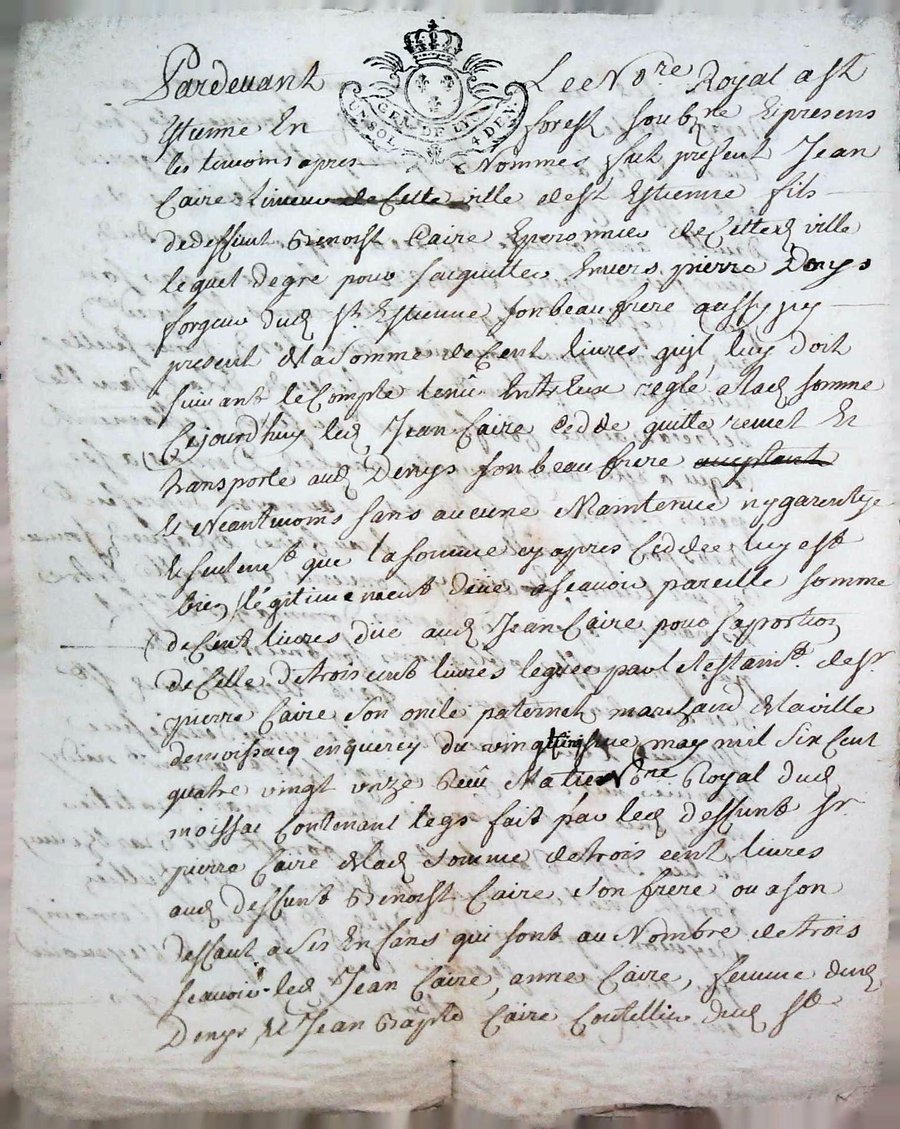 Pardevant Le No.re Royal a St
Estienne En forest soub.ne Et presens
les temoins apres Nommes fut present Jean
Caire Limeur de Cette ville de St Estienne fils
de deffunt Benoist Caire Eperonnier de Cetted ville
lequel de gré pour s'acquitter Envers pierre Denys
forgeur dud St Estienne son beau frere aussy icy
present de la somme de Cent livres qu'il luy doit
suivant le Compte tenu Entr'Eux reglé a lad somme
Cejourd'huy led Jean Caire cedde quitte remet Et
transporte aud Denys son beau frere acceptant
Et Neantmoins sans aucune Maintenue ny garentye
Et seulem.t que la somme cy apres Ceddée luy est
bien légitimement düe a scavoir pareille somme
de Cent livres düe aud Jean Caire pour sa portion
de Celle de trois cents livres leguée par le testam.t de sr
pierre Caire son oncle paternel marchand de la ville
de moissacq en quercy du vingt may mil six Cent
quatre vingt onze Receu Matié No.re Royal dud
moissac Contenant legs fait par led deffunt sr
pierre Caire de lad somme de trois cent livres
aud deffunt Benoist Caire son frere ou a son
deffaut a ses Enfans qui sont au Nombre de trois
scavoir led Jean Caire, anne Caire, femme dud
Denys Et Jean Bapte Caire Coutellier dud St
UN SOL GEN. DE LYN 4 DEN.